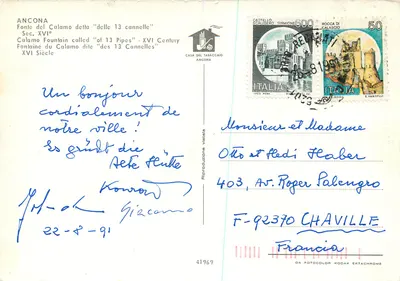 ANCONA
Fonte del Calamo detta "delle 13 cannelle"
Sec. XVI°
Calamo Fountain called "of 13 Pipes" - XVI Century
Fontaine du Calamo dite "des 13 Cannelles"
XVI Siècle
CASA DEL TABACCAIO
ANCONA
CASTELLO
600
ITALIA
ROCCA DI
50
ITALIA
Un bonjour
cordialement de
notre ville !
Es grüßt die
Alte Hütte
Konrad
Giacomo
22-8-91
Riproduzione vietata
Monsieur et Madame
Otto et Hedi Haber
403, Av. Roger Salengro
F-92370 CHAVILLE
Francia